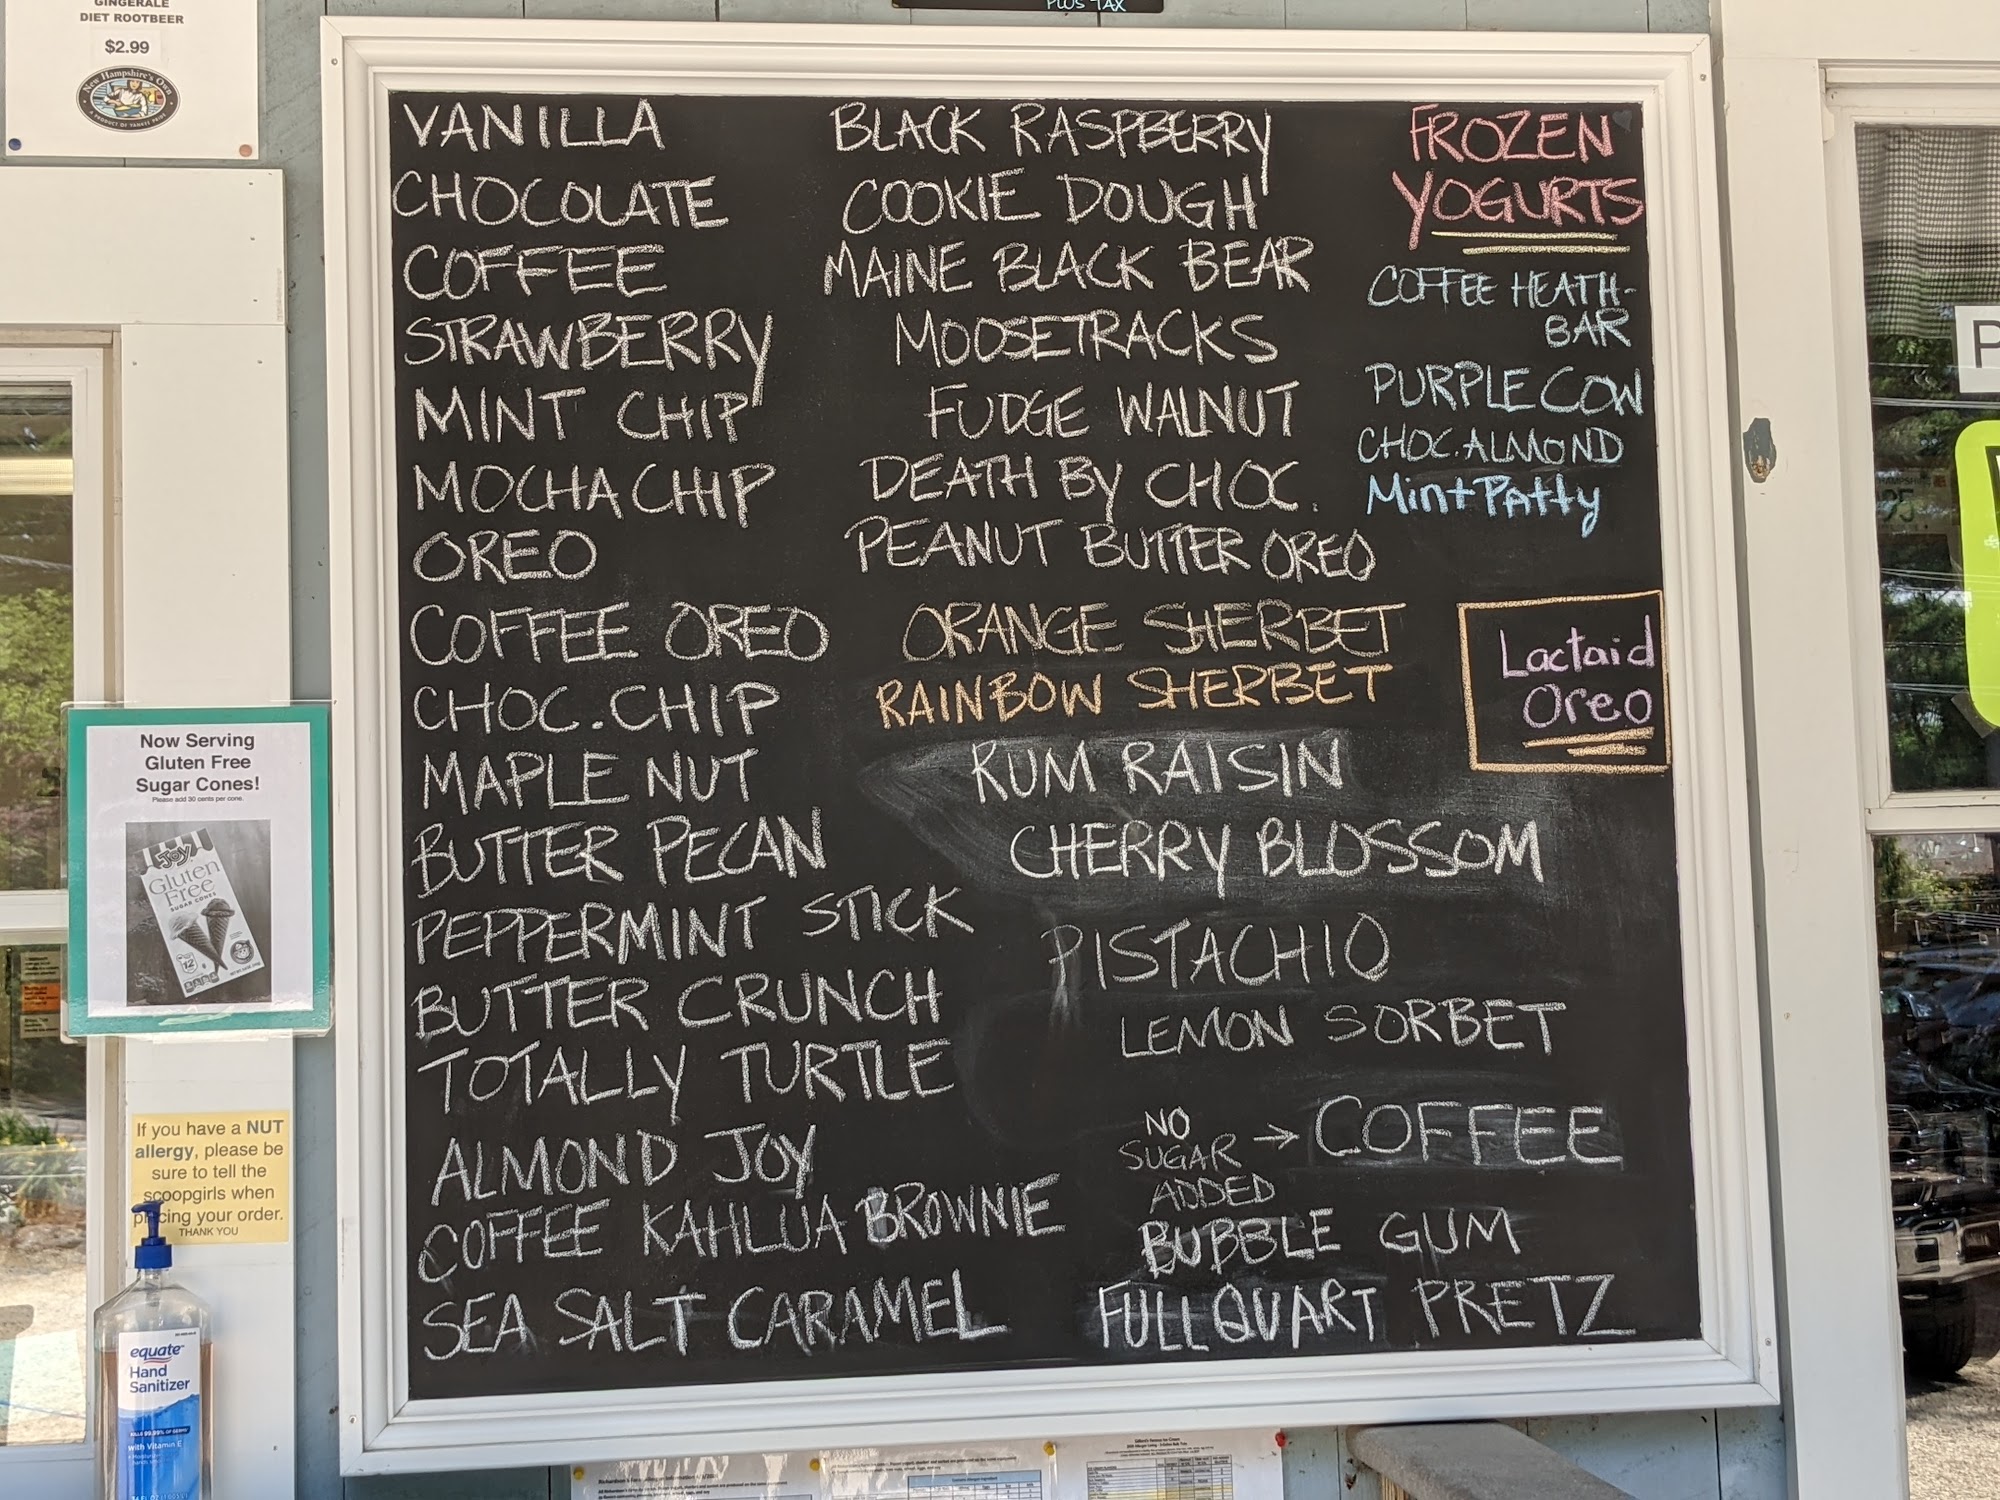 GINGERALE
DIET ROOTBEER
$2.99
New Hampshire's Own
A PRODUCT OF YANKEE PRIDE
PLUS TAX
VANILLA
CHOCOLATE
COFFEE
STRAWBERRY
MINT CHIP
MOCHA CHIP
OREO
COFFEE OREO
CHOC. CHIP
MAPLE NUT
BUTTER PECAN
PEPPERMINT STICK
BUTTER CRUNCH
TOTALLY TURTLE
ALMOND JOY
COFFEE KAHLUA BROWNIE
SEA SALT CARAMEL
BLACK RASPBERRY
COOKIE DOUGH
MAINE BLACK BEAR
MOOSETRACKS
FUDGE WALNUT
DEATH BY CHOC.
PEANUT BUTTER OREO
ORANGE SHERBET
RAINBOW SHERBET
RUM RAISIN
CHERRY BLOSSOM
PISTACHIO
LEMON SORBET
NO
SUGAR → COFFEE
ADDED
BUBBLE GUM
FULL QUART PRETZ
FROZEN
YOGURTS
COFFEE HEATH-
BAR
PURPLE COW
CHOC. ALMOND
Mint Patty
Lactaid
Oreo
Now Serving
Gluten Free
Sugar Cones!
Please add 30 cents per cone.
JOY
Gluten
Free
SUGAR CONES
12
If you have a NUT
allergy, please be
sure to tell the
scoopgirls when
pricing your order.
THANK YOU
equate
Hand
Sanitizer
KILLS 99.99% OF GERMS
with Vitamin E
P